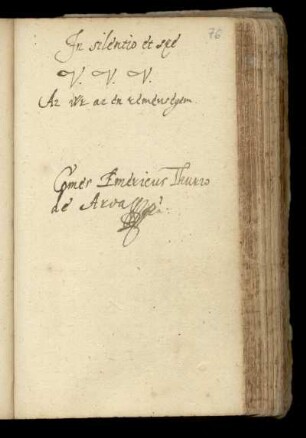 76
In silentio et spe
V. V. V.
Az Ur az en remensegem
Comes Emericus Thurzo
de Arva